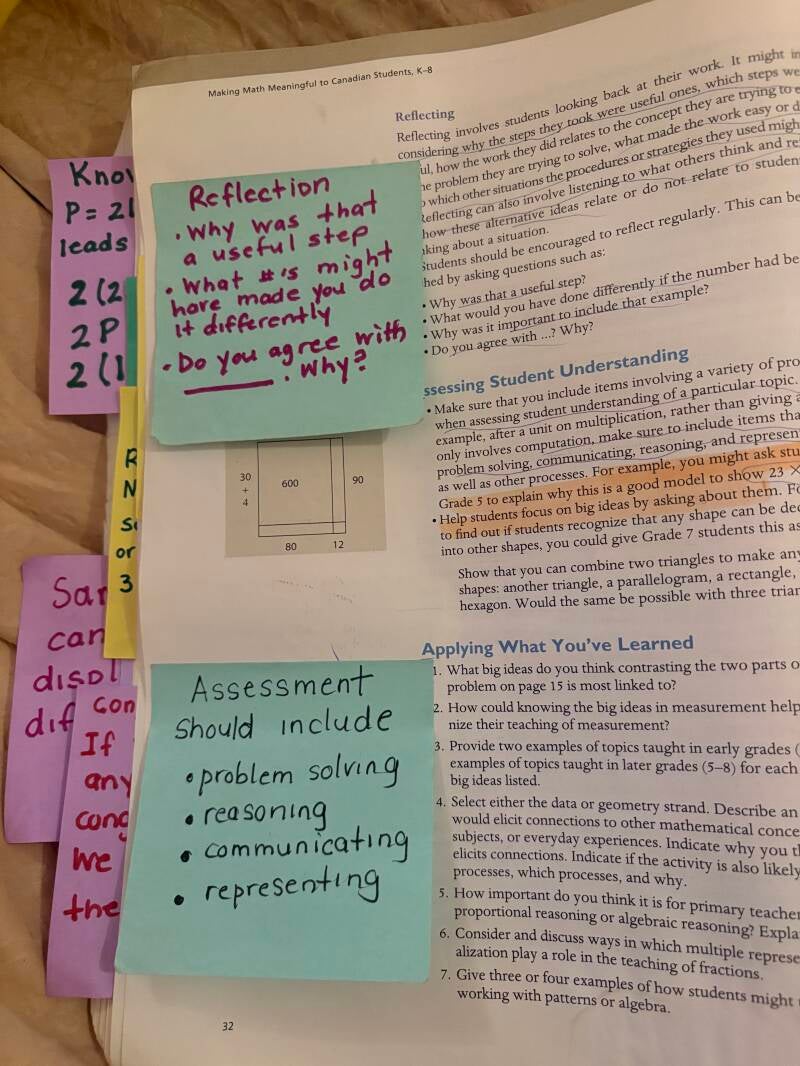 Making Math Meaningful to Canadian Students, K–8
Reflecting
Reflecting involves students looking back at their work. It might
considering why the steps they took were useful ones, which steps
how the work they did relates to the concept they are trying to
problem they are trying to solve, what made the work easy or
which other situations the procedures or strategies they used
Reflecting can also involve listening to what others think and
how these alternative ideas relate or do not relate to
about a situation.
Students should be encouraged to reflect regularly. This can be
by asking questions such as:
• Why was that a useful step?
• What would you have done differently if the number had
• Why was it important to include that example?
• Do you agree with ...? Why?
Assessing Student Understanding
• Make sure that you include items involving a variety of
when assessing student understanding of a particular topic.
example, after a unit on multiplication, rather than giving
only involves computation, make sure to include items
problem solving, communicating, reasoning, and
as well as other processes. For example, you might ask
Grade 5 to explain why this is a good model to show 23 ×
• Help students focus on big ideas by asking about them.
to find out if students recognize that any shape can be
into other shapes, you could give Grade 7 students this
Show that you can combine two triangles to make
shapes: another triangle, a parallelogram, a rectangle,
hexagon. Would the same be possible with three
Applying What You've Learned
1. What big ideas do you think contrasting the two parts
problem on page 15 is most linked to?
2. How could knowing the big ideas in measurement help
nize their teaching of measurement?
3. Provide two examples of topics taught in early grades (
examples of topics taught in later grades (5–8) for each
big ideas listed.
4. Select either the data or geometry strand. Describe an
would elicit connections to other mathematical
subjects, or everyday experiences. Indicate why you
elicits connections. Indicate if the activity is also likely
processes, which processes, and why.
5. How important do you think it is for primary
proportional reasoning or algebraic reasoning?
6. Consider and discuss ways in which multiple
alization play a role in the teaching of fractions.
7. Give three or four examples of how students might
working with patterns or algebra.
Reflection
• Why was that
a useful step
• What #'s might
have made you do
it differently
• Do you agree with
______. Why?
30
+
4
600
90
80
12
Assessment
Should include
• problem solving
• reasoning
• communicating
• representing
32
P = 2
leads
2 (2
2 P
2 (1
R
N
or
3
can
If
any
We
the